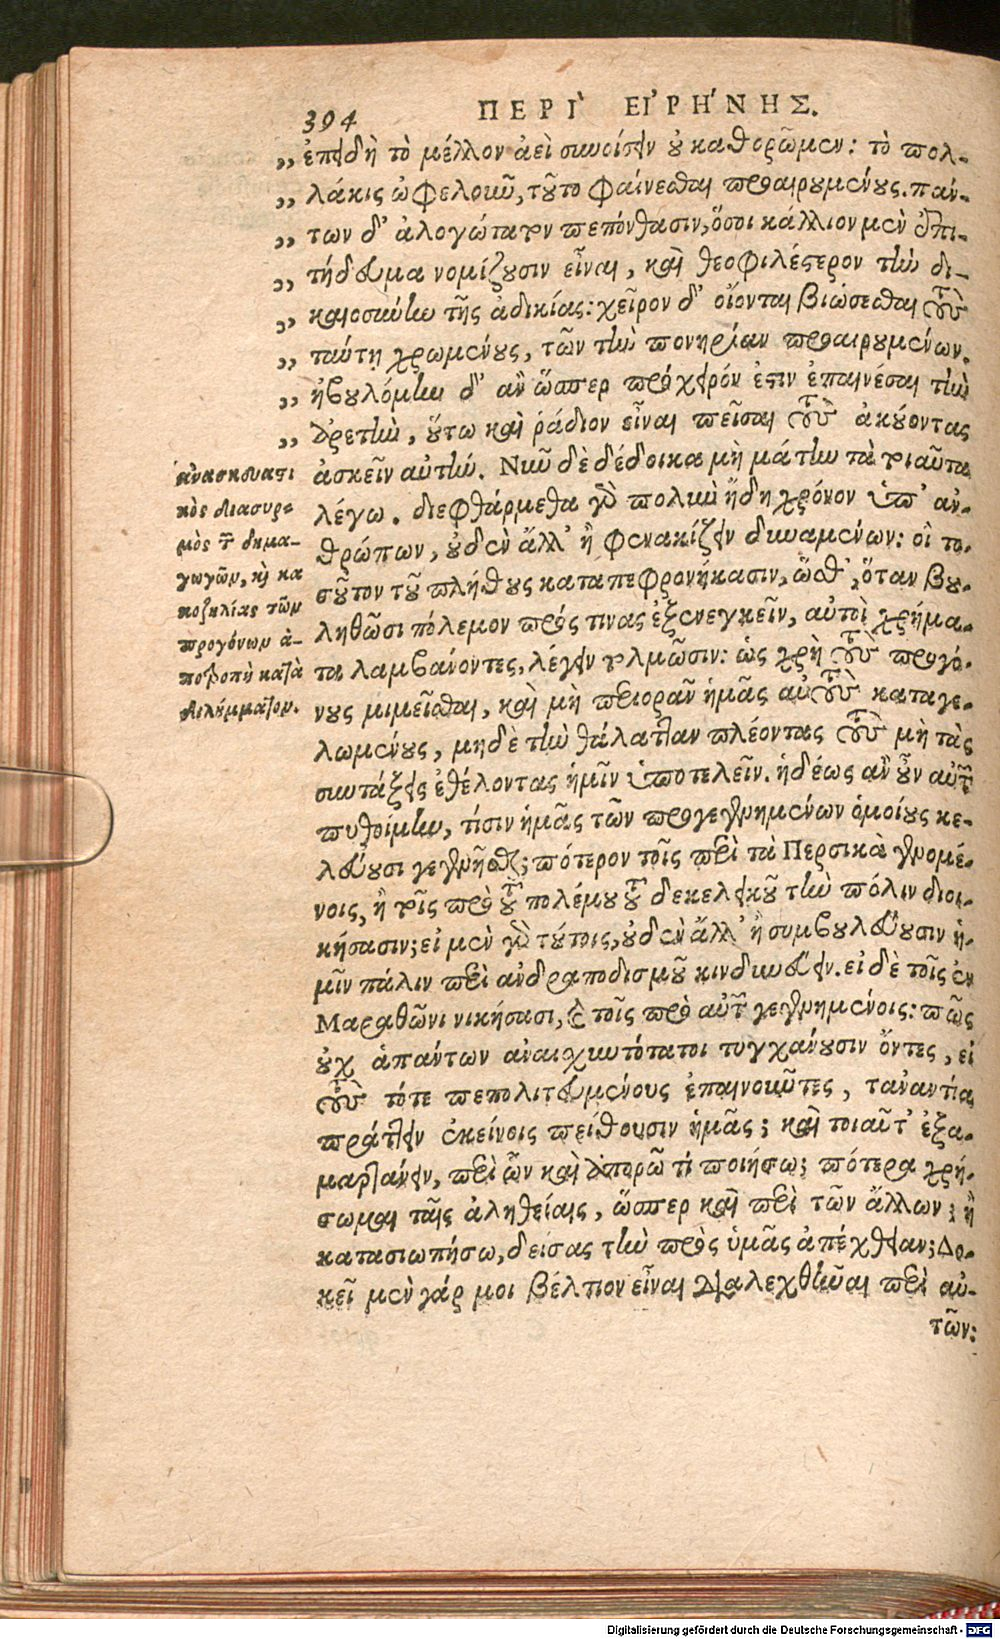 394 ΠΕΡῚ ΕἸΡΉΝΗΣ.
„ ἐπειδὴ τὸ μέλλον ἀεὶ συνοίσειν οὐ καθορῶμεν: τὸ πολ-
„ λάκις ὠφελοῦν, τοῦτο φαίνεσθαι προαιρουμένους. πάν-
„ των δ' ἀλογώτατον πεπόνθασιν, ὅσοι κάλλιον μὲν ἐπι-
„ τήδευμα νομίζουσιν εἶναι, καὶ θεοφιλέστερον τὴν δι-
„ καιοσύνην τῆς ἀδικίας: χεῖρον δ' οἴονται βιώσεσθαι τοὺς
„ ταύτῃ χρωμένους, τῶν τὴν πονηρίαν προαιρουμένων.
„ ἠβουλόμην δ' ἂν ὥσπερ πρόχειρόν ἐστιν ἐπαινέσαι τὴν
„ ἀρετὴν, οὕτω καὶ ῥάδιον εἶναι πεῖσαι τοὺς ἀκούοντας
ἀσκεῖν αὐτήν. Νῦν δὲ δέδοικα μὴ μάτην τὰ τοιαῦτα
λέγω. διεφθάρμεθα γὰρ πολὺν ἤδη χρόνον ὑπ' ἀν-
θρώπων, οὐδὲν ἄλλ' ἢ φενακίζειν δυναμένων: οἳ το-
σοῦτον τοῦ πλήθους καταπεφρονήκασιν, ὥσθ', ὅταν βου-
ληθῶσι πόλεμον πρός τινας ἐξενεγκεῖν, αὐτοὶ χρήμα-
τα λαμβάνοντες, λέγειν τολμῶσιν: ὡς χρὴ τοὺς προγό-
νους μιμεῖσθαι, καὶ μὴ περιορᾶν ἡμᾶς αὐτοὺς καταγε-
λωμένους, μηδὲ τὴν θάλατταν πλέοντας τοὺς μὴ τὰς
συντάξεις ἐθέλοντας ἡμῖν ὑποτελεῖν. ἡδέως ἂν οὖν αὐτῶν
πυθοίμην, τίσιν ἡμᾶς τῶν προγεγενημένων ὁμοίους κε-
λεύουσι γεγενῆσθαι; πότερον τοῖς περὶ τὰ Περσικὰ γενομέ-
νοις, ἢ τοῖς πρὸ τοῦ πολέμου τοῦ δεκελεικοῦ τὴν πόλιν διοι-
κήσασιν; εἰ μὲν γὰρ τούτοις, οὐδὲν ἄλλ' ἢ συμβουλεύουσιν ἡ-
μῖν πάλιν περὶ ἀνδραποδισμοῦ κινδυνεύειν. εἰ δὲ τοῖς ἐν
Μαραθῶνι νικήσασι, καὶ τοῖς πρὸ αὐτῶν γεγενημένοις: πῶς
οὐχ ἁπάντων ἀναισχυντότατοι τυγχάνουσιν ὄντες, εἰ
τοὺς τότε πεπολιτευμένους ἐπαινοῦντες, τἀναντία
πράττειν ἐκείνοις πείθουσιν ἡμᾶς; καὶ τοιαῦτ' ἐξα-
μαρτάνειν, περὶ ὧν καὶ ἀπορῶ τί ποιήσω; πότερα χρή-
σωμαι ταῖς ἀληθείαις, ὥσπερ καὶ περὶ τῶν ἄλλων; ἢ
κατασιωπήσω, δείσας τὴν πρὸς ὑμᾶς ἀπέχθειαν; Δο-
κεῖ μὲν γάρ μοι βέλτιον εἶναι διαλεχθῆναι περὶ αὐ-
τῶν:
ἀνασκευαστι
κὸς διασυρ-
μὸς τῶν δημα-
γωγῶν, καὶ κα
κοζηλίας τῶν
προγόνων ἀ-
ποτροπὴ κατὰ
διλήμματον.
Digitalisierung gefördert durch die Deutsche Forschungsgemeinschaft - DFG